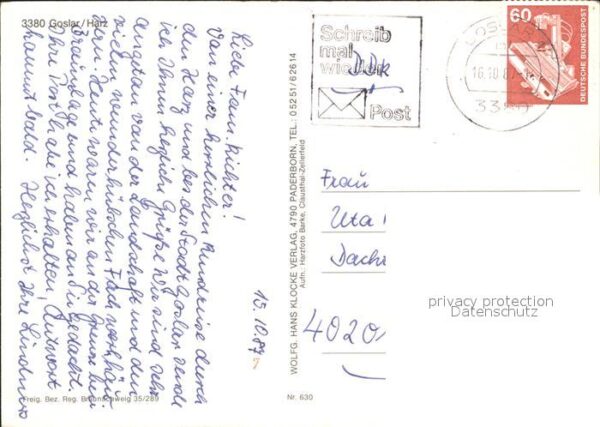 3380 Goslar/Harz
Liebe Fam. Richter!
Von einer herrlichen Rundreise durch
den Harz und bei der Stadt Goslar sende
ich Ihnen herzliche Grüße. Wir sind sehr
angetan von der Landschaft und den
vielen wunderhübschen Fachwerkhäu-
sern. Heute waren wir an der Grenze bei
Braunlage und haben an Sie gedacht.
Ihre Post habe ich erhalten, Antwort
kommt bald. Herzlichst Ihre Lindners
15.10.87
Freig. Bez. Reg. Braunschweig 35/289
Nr. 630
WOLFG. HANS KLOCKE VERLAG, 4790 PADERBORN, TEL.: 05251/62614
Aufn.: Harzfoto Barke, Clausthal-Zellerfeld
Schreib
mal
wieder
Post
DDR
GOSLAR
16.10.87
3380
60
DEUTSCHE BUNDESPOST
Frau
Uta
Dachr
4020
privacy protection
Datenschutz